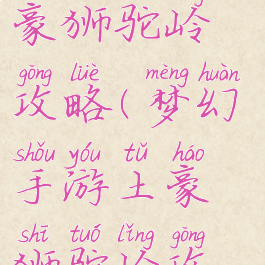 豪狮驼岭
gōng lüè mèng huàn
攻略(梦幻
shǒu yóu tǔ háo
手游土豪
shī tuó lǐng gōng
狮驼岭攻